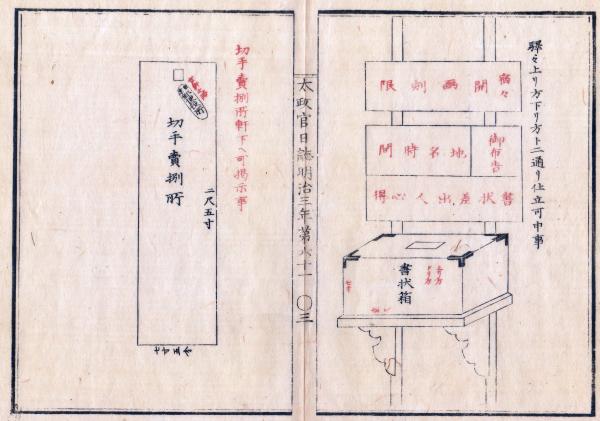 驛々上リ方下リ方ト二通リ仕立可申事
宿々
開函刻限
御布告
地名時間
書状差出人心得
書状箱
上リ方
下リ方
太政官日誌明治三年第六十一
○三
切手賣捌所軒下ヘ可掲示事
切手賣捌所
二尺五寸